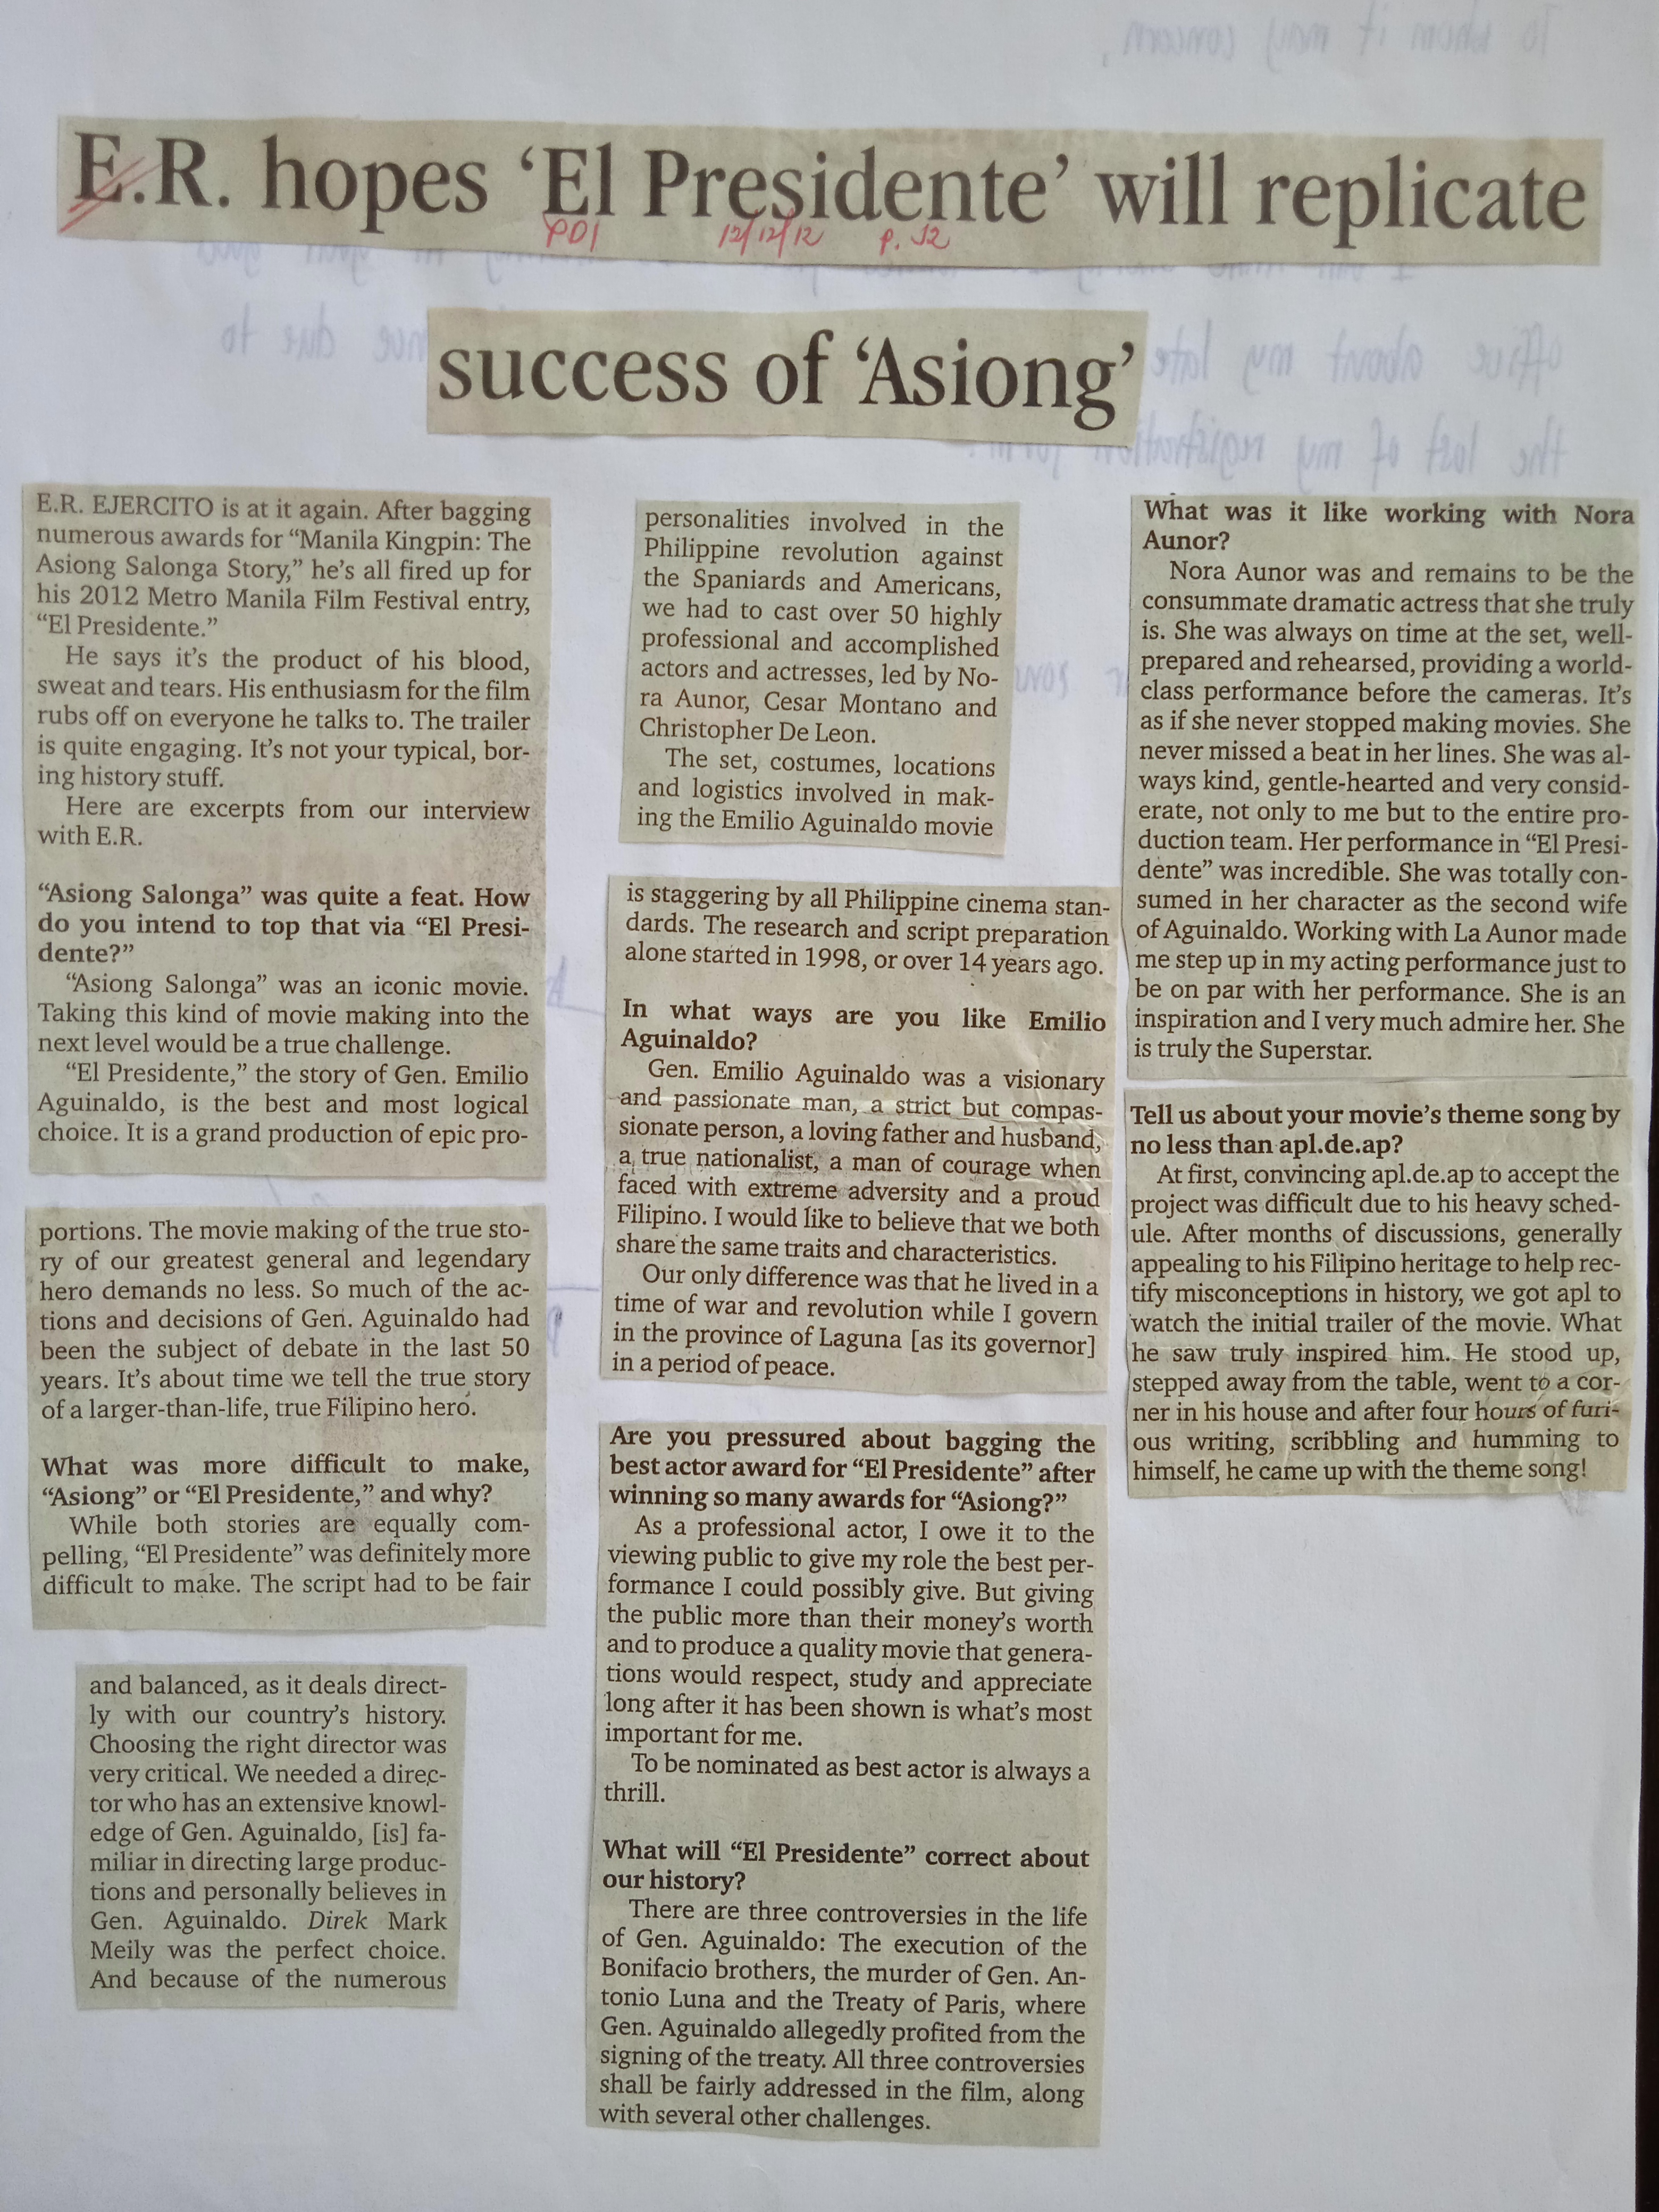 To whom it may concern,
E.R. hopes ‘El Presidente’ will replicate
PDI 12/12/12 p. J2
office about my late
due to
the lost of my registration form.
success of ‘Asiong’
E.R. EJERCITO is at it again. After bagging
numerous awards for “Manila Kingpin: The
Asiong Salonga Story,” he’s all fired up for
his 2012 Metro Manila Film Festival entry,
“El Presidente.”
He says it’s the product of his blood,
sweat and tears. His enthusiasm for the film
rubs off on everyone he talks to. The trailer
is quite engaging. It’s not your typical, bor-
ing history stuff.
Here are excerpts from our interview
with E.R.
“Asiong Salonga” was quite a feat. How
do you intend to top that via “El Presi-
dente?”
“Asiong Salonga” was an iconic movie.
Taking this kind of movie making into the
next level would be a true challenge.
“El Presidente,” the story of Gen. Emilio
Aguinaldo, is the best and most logical
choice. It is a grand production of epic pro-
portions. The movie making of the true sto-
ry of our greatest general and legendary
hero demands no less. So much of the ac-
tions and decisions of Gen. Aguinaldo had
been the subject of debate in the last 50
years. It’s about time we tell the true story
of a larger-than-life, true Filipino hero.
What was more difficult to make,
“Asiong” or “El Presidente,” and why?
While both stories are equally com-
pelling, “El Presidente” was definitely more
difficult to make. The script had to be fair
and balanced, as it deals direct-
ly with our country’s history.
Choosing the right director was
very critical. We needed a direc-
tor who has an extensive knowl-
edge of Gen. Aguinaldo, [is] fa-
miliar in directing large produc-
tions and personally believes in
Gen. Aguinaldo. Direk Mark
Meily was the perfect choice.
And because of the numerous
personalities involved in the
Philippine revolution against
the Spaniards and Americans,
we had to cast over 50 highly
professional and accomplished
actors and actresses, led by No-
ra Aunor, Cesar Montano and
Christopher De Leon.
The set, costumes, locations
and logistics involved in mak-
ing the Emilio Aguinaldo movie
is staggering by all Philippine cinema stan-
dards. The research and script preparation
alone started in 1998, or over 14 years ago.
In what ways are you like Emilio
Aguinaldo?
Gen. Emilio Aguinaldo was a visionary
and passionate man, a strict but compas-
sionate person, a loving father and husband,
a true nationalist, a man of courage when
faced with extreme adversity and a proud
Filipino. I would like to believe that we both
share the same traits and characteristics.
Our only difference was that he lived in a
time of war and revolution while I govern
in the province of Laguna [as its governor]
in a period of peace.
Are you pressured about bagging the
best actor award for “El Presidente” after
winning so many awards for “Asiong?”
As a professional actor, I owe it to the
viewing public to give my role the best per-
formance I could possibly give. But giving
the public more than their money’s worth
and to produce a quality movie that genera-
tions would respect, study and appreciate
long after it has been shown is what’s most
important for me.
To be nominated as best actor is always a
thrill.
What will “El Presidente” correct about
our history?
There are three controversies in the life
of Gen. Aguinaldo: The execution of the
Bonifacio brothers, the murder of Gen. An-
tonio Luna and the Treaty of Paris, where
Gen. Aguinaldo allegedly profited from the
signing of the treaty. All three controversies
shall be fairly addressed in the film, along
with several other challenges.
What was it like working with Nora
Aunor?
Nora Aunor was and remains to be the
consummate dramatic actress that she truly
is. She was always on time at the set, well-
prepared and rehearsed, providing a world-
class performance before the cameras. It’s
as if she never stopped making movies. She
never missed a beat in her lines. She was al-
ways kind, gentle-hearted and very consid-
erate, not only to me but to the entire pro-
duction team. Her performance in “El Presi-
dente” was incredible. She was totally con-
sumed in her character as the second wife
of Aguinaldo. Working with La Aunor made
me step up in my acting performance just to
be on par with her performance. She is an
inspiration and I very much admire her. She
is truly the Superstar.
Tell us about your movie’s theme song by
no less than apl.de.ap?
At first, convincing apl.de.ap to accept the
project was difficult due to his heavy sched-
ule. After months of discussions, generally
appealing to his Filipino heritage to help rec-
tify misconceptions in history, we got apl to
watch the initial trailer of the movie. What
he saw truly inspired him. He stood up,
stepped away from the table, went to a cor-
ner in his house and after four hours of furi-
ous writing, scribbling and humming to
himself, he came up with the theme song!